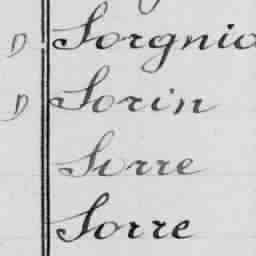 D Sorgnia
D Sorin
Sirre
Sorre